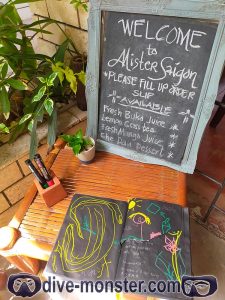 WELCOME
to
Mister Saigon
*PLEASE FILL UP ORDER
SLIP
AVAILABLE
Fresh Buko Juice
Lemon Grass Tea
Fresh Mango Juice
Che Dau Dessert
dive-monster.com